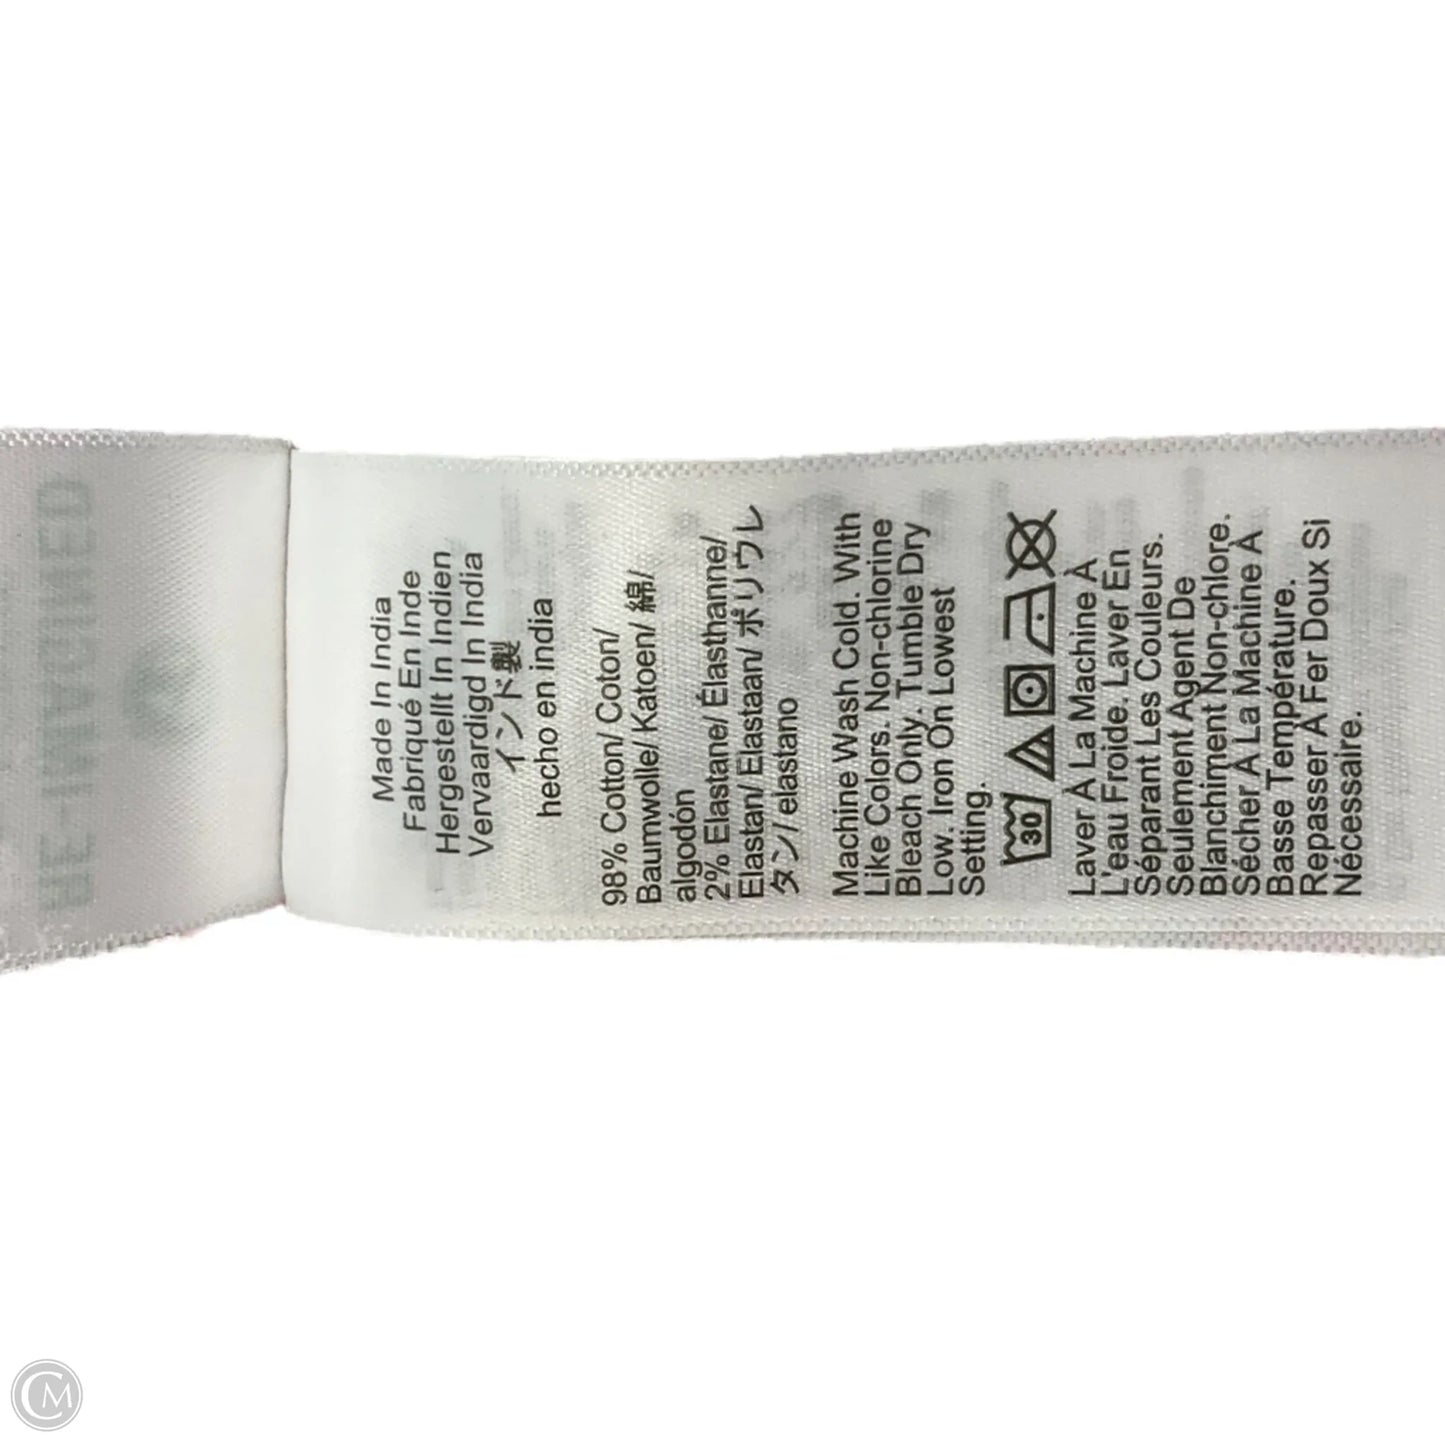 RE-IMAGINED
Made In India
Fabriqué En Inde
Hergestellt In Indien
Vervaardigd In India
インド製
hecho en india
98% Cotton/ Coton/
Baumwolle/ Katoen/ 綿/
algodón
2% Elastane/ Élasthanne/
Elastan/ Elastaan/ ポリウレ
タン/ elastano
Machine Wash Cold. With
Like Colors. Non-chlorine
Bleach Only. Tumble Dry
Low. Iron On Lowest
Setting.
30
Laver À La Machine À
L'eau Froide. Laver En
Séparant Les Couleurs.
Seulement Agent De
Blanchiment Non-chlore.
Sécher À La Machine À
Basse Température.
Repasser À Fer Doux Si
Nécessaire.
CM